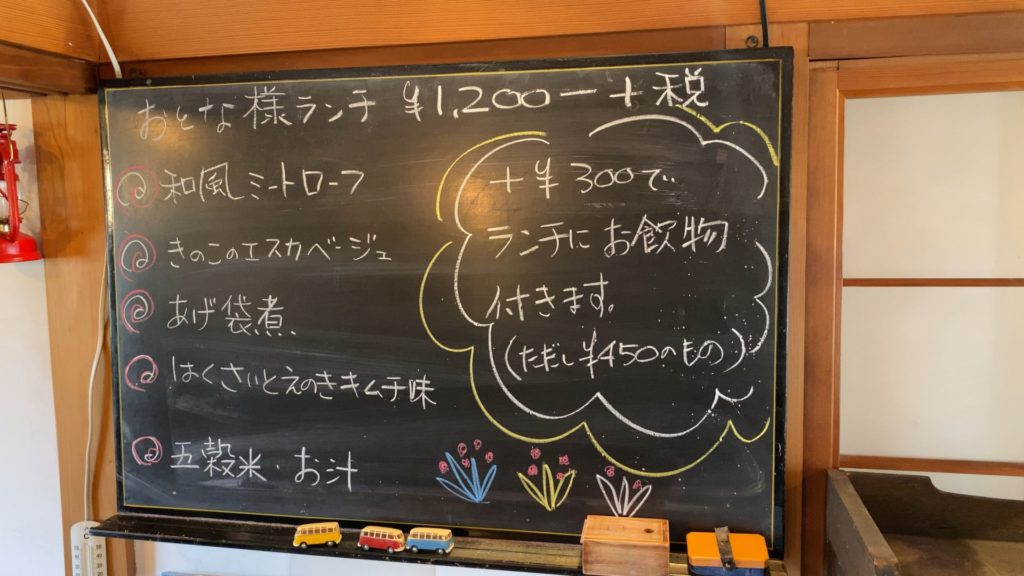 おとな様ランチ ¥1,200ー+税
和風ミートローフ
きのこのエスカベージュ
あげ袋煮
はくさいとえのきキムチ味
五穀米・お汁
+¥300で
ランチにお飲物
付きます。
(ただし¥450のもの)